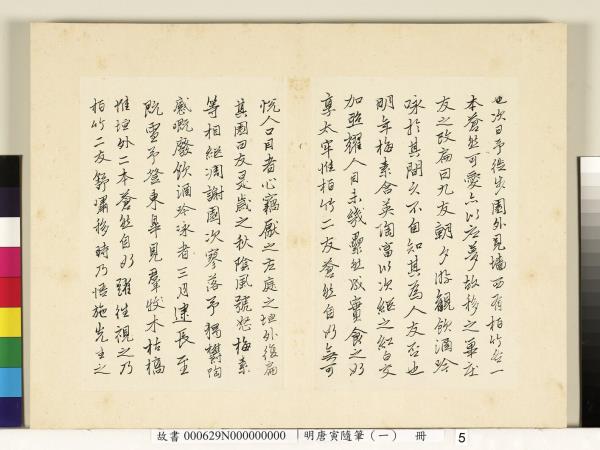 也次日予從步園外見墻西有栢竹各一
本蒼然可愛亦以夢故移之畢在
友之改扁曰九友朝夕游觀飲酒吟
咏於其間亦不自知其為人友否也
明年梅素含英陶富以次继之红白交
加照耀人目未幾纍然成實食之好
享太牢惟栢竹二友蒼然自好無可
悦人口目者心竊厭之左庭之垣外復扁
其園曰友是歲之秋陰風號怒梅素
等相继凋謝園次寥落予獨鬱陶
感嘅廢飲酒吟咏者三月逮長至
既雪予登東皋見羣牧木枯槁
惟垣外二本蒼然自好躍往視之乃
栢竹二友舒嘯移時乃悟施先生之
故書 000629N000000000 明唐寅隨筆（一） 冊 5